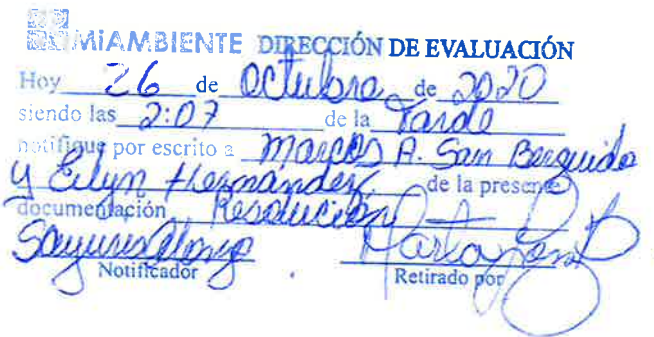 MiAMBIENTE DIRECCIÓN DE EVALUACIÓN
Hoy 26 de Octubre de 2020
siendo las 2:07 de la Tarde
notifique por escrito a Marcos A. San Berguido
y Eilyn Hernández de la presente
documentación Resolución
Notificador Retirado por